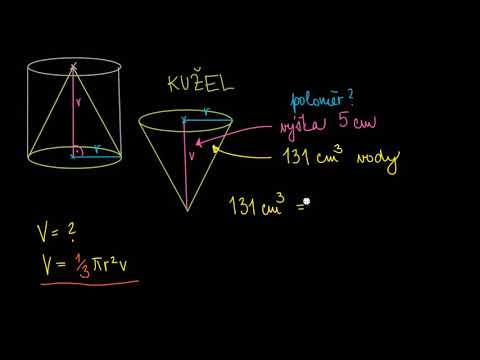 KUŽEL
v
r
r
v
poloměr?
výška 5 cm
131 cm³ vody
131 cm³ =
V = ?
V = 1/3 πr²v